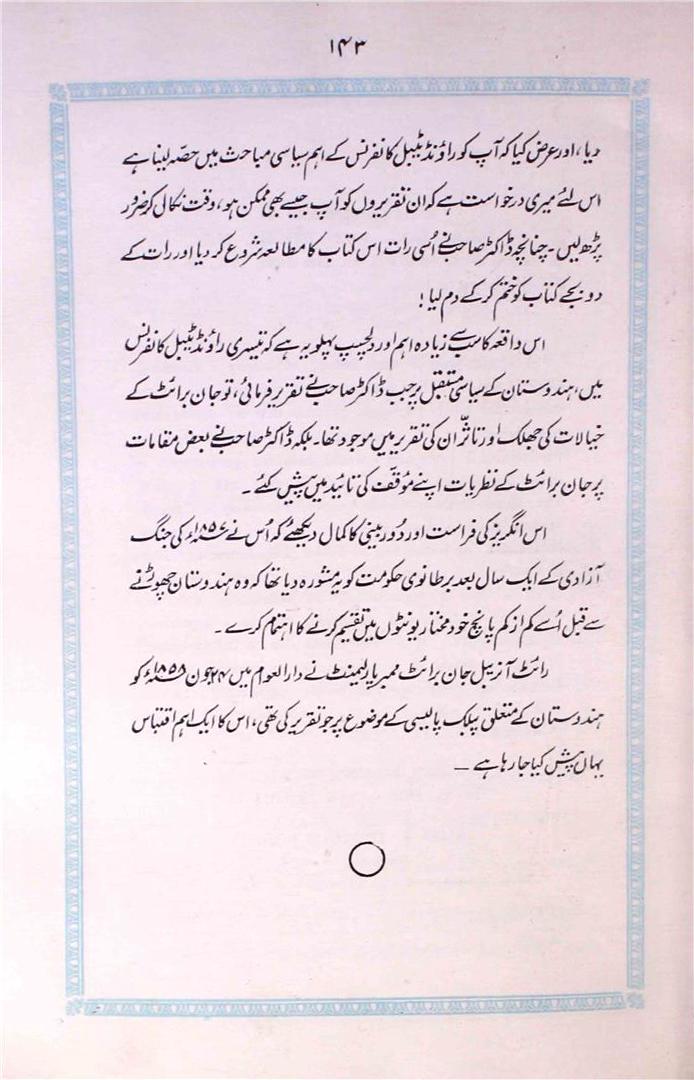 ۱۴۳
دیا، اور عرض کیا کہ آپ کو راؤنڈ ٹیبل کانفرنس کے اہم سیاسی مباحث میں حصہ لینا ہے
اس لئے میری درخواست ہے کہ ان تقریروں کو آپ جیسے بھی ممکن ہو، وقت نکال کر ضرور
پڑھ لیں۔ چنانچہ ڈاکٹر صاحب نے اُسی رات اس کتاب کا مطالعہ شروع کر دیا اور رات کے
دو بجے کتاب کو ختم کر کے دم لیا!
اس واقعہ کا سب سے زیادہ اہم اور دلچسپ پہلو یہ ہے کہ تیسری راؤنڈ ٹیبل کانفرنس
میں، ہندوستان کے سیاسی مستقبل پر جب ڈاکٹر صاحب نے تقریر فرمائی، تو جان برائٹ کے
خیالات کی جھلک اور تاثر ان کی تقریر میں موجود تھا۔ بلکہ ڈاکٹر صاحب نے بعض مقامات
پر جان برائٹ کے نظریات اپنے مؤقف کی تائید میں پیش کئے۔
اس انگریز کی فراست اور دُور بینی کا کمال دیکھئے کہ اُس نے ۱۸۵۷ء کی جنگ
آزادی کے ایک سال بعد برطانوی حکومت کو یہ مشورہ دیا تھا کہ وہ ہندوستان چھوڑنے
سے قبل اُسے کم از کم پانچ خود مختار یونٹوں میں تقسیم کرنے کا اہتمام کرے۔
رائٹ آنریبل جان برائٹ ممبر پارلیمنٹ نے دارالعوام میں ۲۴ جون ۱۸۵۸ء کو
ہندوستان کے متعلق پبلک پالیسی کے موضوع پر جو تقریر کی تھی، اس کا ایک اہم اقتباس
یہاں پیش کیا جا رہا ہے —